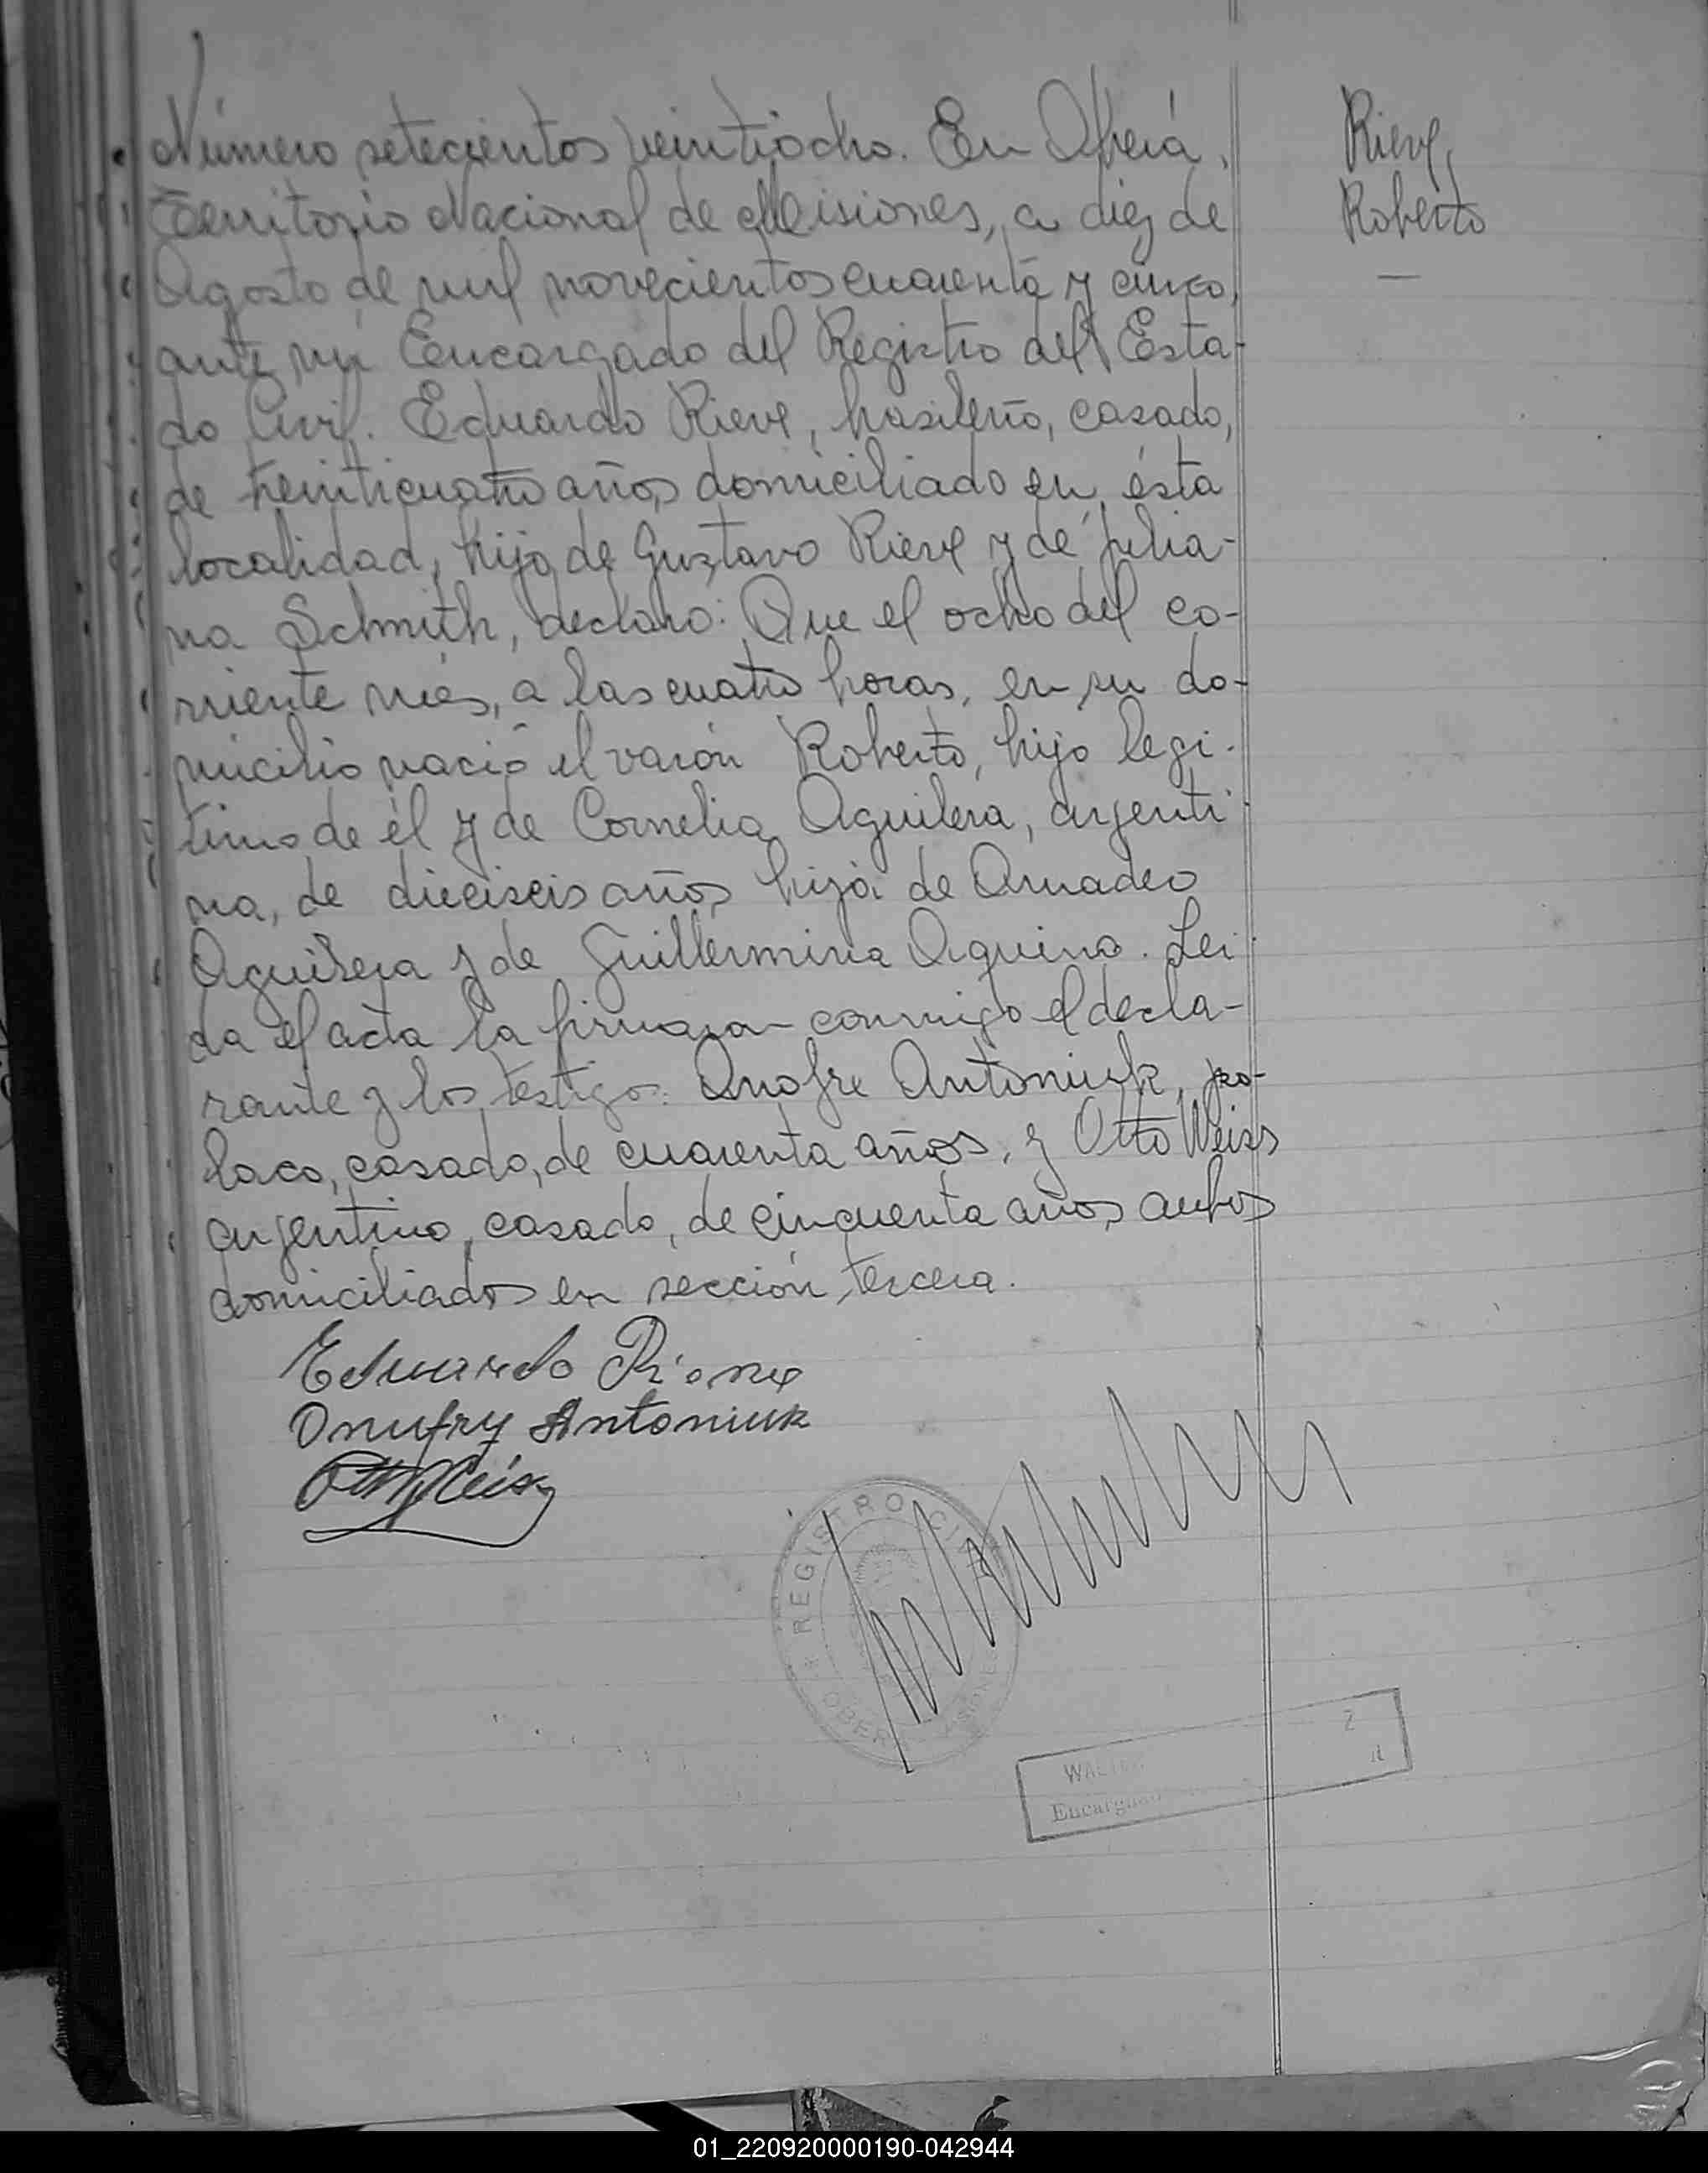 Número setecientos veintiocho. En Oberá,
Territorio Nacional de Misiones, a diez de
Agosto de mil novecientos cuarenta y cinco,
ante mí Encargado del Registro del Esta-
do Civil. Eduardo Rieve, brasileño, casado,
de treinticuatro años, domiciliado en ésta
localidad, hijo de Gustavo Rieve y de Julia-
na Schmith, declaró: Que el ocho del co-
rriente més, a las cuatro horas, en su do-
micilio nació el varón Roberto, hijo legi-
timo de él y de Cornelia Aguilera, argenti
na, de dieciseis años, hija de Amadeo
Aguilera y de Guillermina Aquino. Lei
da el acta la firmaron conmigo el decla-
rante y los testigos: Onofre Antoniuk, po-
laco, casado, de cuarenta años, y Otto Weiss
argentino, casado, de cincuenta años, ambos
domiciliados en sección tercera.
Rieve,
Roberto
Eduardo
Onufry Antoniuk
Otto Weiss
REGISTRO CIVIL
OBERÁ MISIONES
WALTER
Encargado
01_220920000190-042944